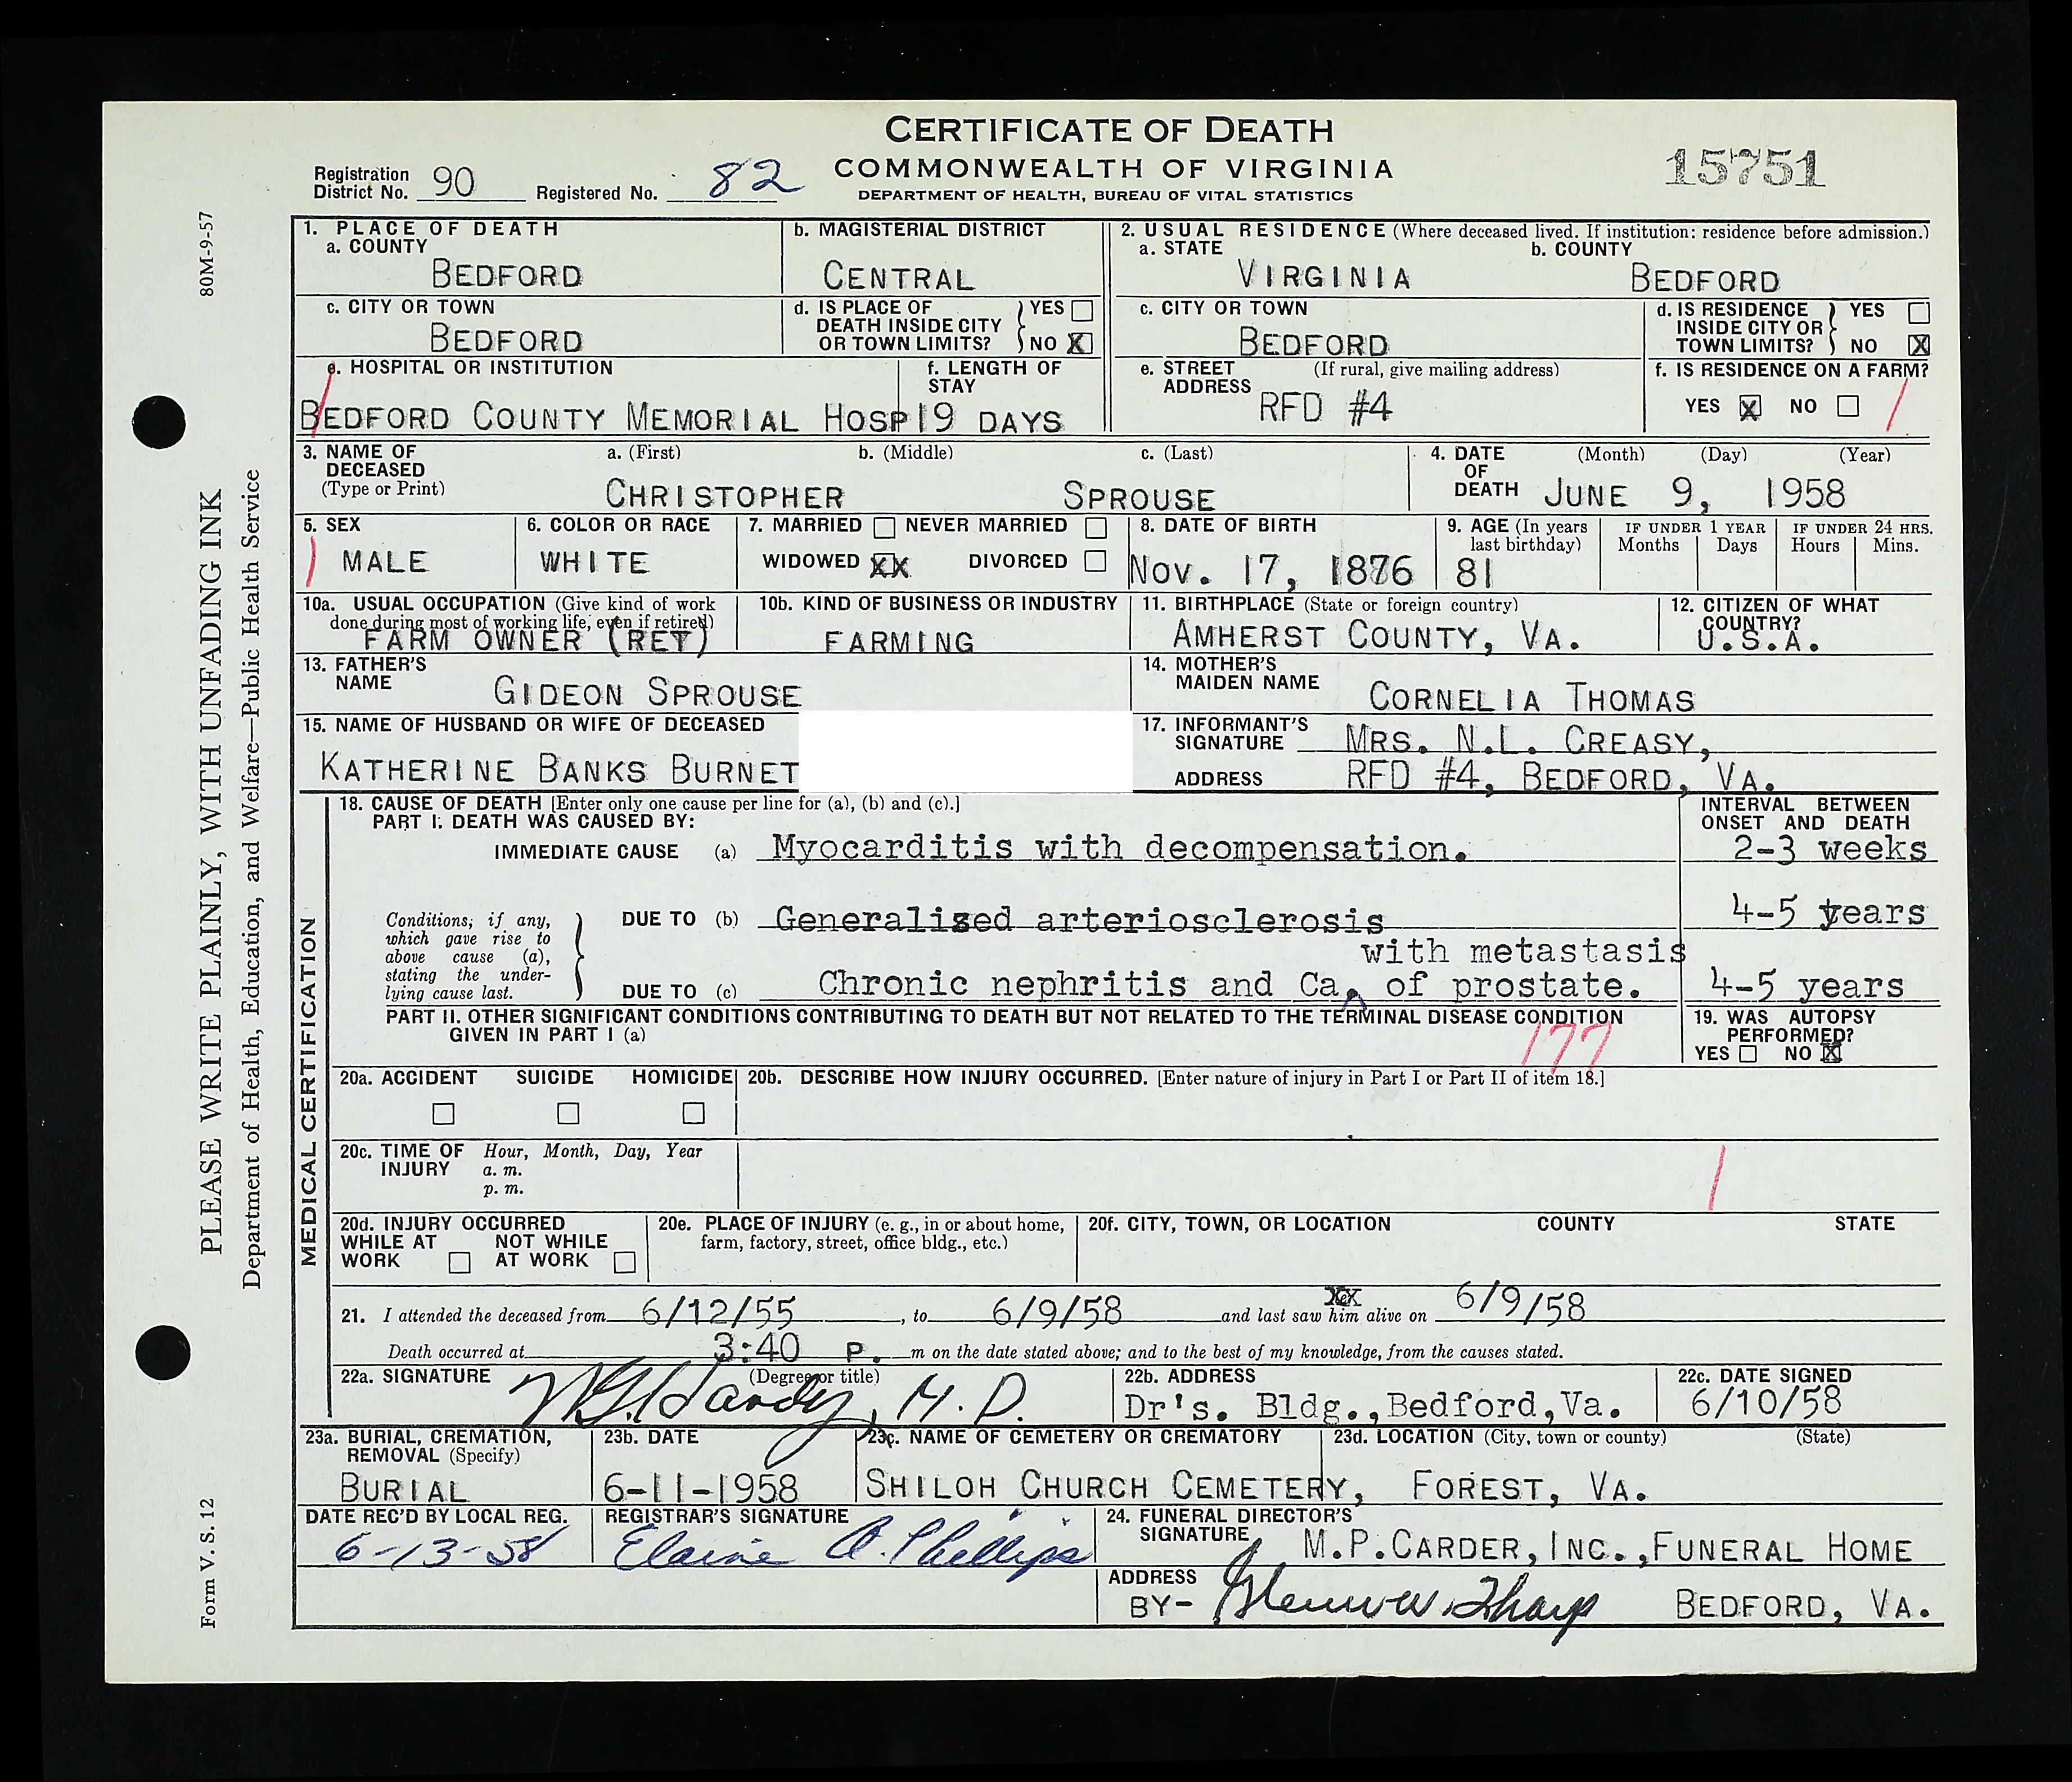 CERTIFICATE OF DEATH
COMMONWEALTH OF VIRGINIA
DEPARTMENT OF HEALTH, BUREAU OF VITAL STATISTICS
15751
Registration District No. 90 Registered No. 82
80M-9-57
PLEASE WRITE PLAINLY, WITH UNFADING INK
Department of Health, Education, and Welfare—Public Health Service
Form V. S. 12
1. PLACE OF DEATH
a. COUNTY
BEDFORD
b. MAGISTERIAL DISTRICT
CENTRAL
2. USUAL RESIDENCE (Where deceased lived. If institution: residence before admission.)
a. STATE
VIRGINIA
b. COUNTY
BEDFORD
c. CITY OR TOWN
BEDFORD
d. IS PLACE OF DEATH INSIDE CITY OR TOWN LIMITS? YES NO X
c. CITY OR TOWN
BEDFORD
d. IS RESIDENCE INSIDE CITY OR TOWN LIMITS? YES NO X
e. HOSPITAL OR INSTITUTION
BEDFORD COUNTY MEMORIAL HOSP
f. LENGTH OF STAY
19 DAYS
e. STREET ADDRESS (If rural, give mailing address)
RFD #4
f. IS RESIDENCE ON A FARM?
YES X NO
3. NAME OF DECEASED (Type or Print)
a. (First) b. (Middle) c. (Last)
CHRISTOPHER SPROUSE
4. DATE OF DEATH (Month) (Day) (Year)
JUNE 9, 1958
5. SEX
MALE
6. COLOR OR RACE
WHITE
7. MARRIED NEVER MARRIED
WIDOWED XX DIVORCED
8. DATE OF BIRTH
NOV. 17, 1876
9. AGE (In years last birthday)
81
IF UNDER 1 YEAR
Months Days
IF UNDER 24 HRS.
Hours Mins.
10a. USUAL OCCUPATION (Give kind of work done during most of working life, even if retired)
FARM OWNER (RET)
10b. KIND OF BUSINESS OR INDUSTRY
FARMING
11. BIRTHPLACE (State or foreign country)
AMHERST COUNTY, VA.
12. CITIZEN OF WHAT COUNTRY?
U.S.A.
13. FATHER'S NAME
GIDEON SPROUSE
14. MOTHER'S MAIDEN NAME
CORNELIA THOMAS
15. NAME OF HUSBAND OR WIFE OF DECEASED
KATHERINE BANKS BURNET
17. INFORMANT'S SIGNATURE MRS. N.L. CREASY,
ADDRESS RFD #4, BEDFORD, VA.
MEDICAL CERTIFICATION
18. CAUSE OF DEATH [Enter only one cause per line for (a), (b) and (c).]
PART I. DEATH WAS CAUSED BY:
INTERVAL BETWEEN ONSET AND DEATH
IMMEDIATE CAUSE (a) Myocarditis with decompensation. 2-3 weeks
Conditions, if any, which gave rise to above cause (a), stating the underlying cause last.
DUE TO (b) Generalized arteriosclerosis 4-5 years
with metastasis
DUE TO (c) Chronic nephritis and Ca. of prostate. 4-5 years
PART II. OTHER SIGNIFICANT CONDITIONS CONTRIBUTING TO DEATH BUT NOT RELATED TO THE TERMINAL DISEASE CONDITION
GIVEN IN PART I (a)
177
19. WAS AUTOPSY PERFORMED?
YES NO X
20a. ACCIDENT SUICIDE HOMICIDE
20b. DESCRIBE HOW INJURY OCCURRED. [Enter nature of injury in Part I or Part II of item 18.]
20c. TIME OF INJURY Hour, Month, Day, Year
a. m.
p. m.
20d. INJURY OCCURRED
WHILE AT WORK NOT WHILE AT WORK
20e. PLACE OF INJURY (e. g., in or about home, farm, factory, street, office bldg., etc.)
20f. CITY, TOWN, OR LOCATION COUNTY STATE
21. I attended the deceased from 6/12/55, to 6/9/58 and last saw him alive on 6/9/58
Death occurred at 3:40 P. m on the date stated above; and to the best of my knowledge, from the causes stated.
22a. SIGNATURE (Degree or title)
Hardy, M.D.
22b. ADDRESS
Dr's. Bldg.,Bedford,Va.
22c. DATE SIGNED
6/10/58
23a. BURIAL, CREMATION, REMOVAL (Specify)
BURIAL
23b. DATE
6-11-1958
23c. NAME OF CEMETERY OR CREMATORY
SHILOH CHURCH CEMETERY,
23d. LOCATION (City, town or county) (State)
FOREST, VA.
DATE REC'D BY LOCAL REG.
6-13-58
REGISTRAR'S SIGNATURE
Elaine A. Phillips
24. FUNERAL DIRECTOR'S SIGNATURE M.P.CARDER,INC.,FUNERAL HOME
ADDRESS
BY- Tharp BEDFORD, VA.